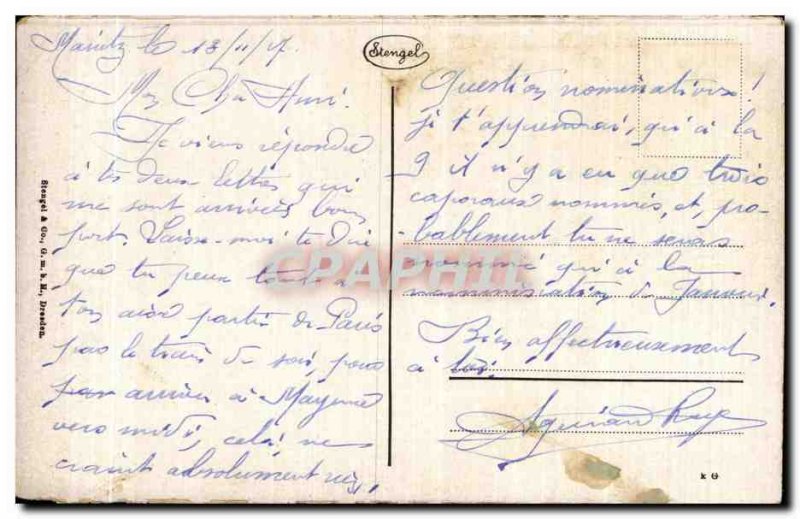 le 13/11/17.
Mon Cher Ami.
Je viens répondre
à tes deux lettres qui
me sont arrivées bon
port. Laisse-moi te dire
que tu peux tout à
ton aise partir de Paris
par le train de soir, pour
par arriver à Mayenne
vers midi, cela ne
craint absolument rien.
Stengel
Question nominations!
je t'apprendrai, qu'à la
9 il n'y a eu que trois
caporaux nommés, et, pro-
bablement tu ne seras
nommé qu'à la
nomination de Janvier.
Bien affectueusement
à toi.
Stengel & Co., G. m. b. H., Dresden.
K G
CPAPHIL